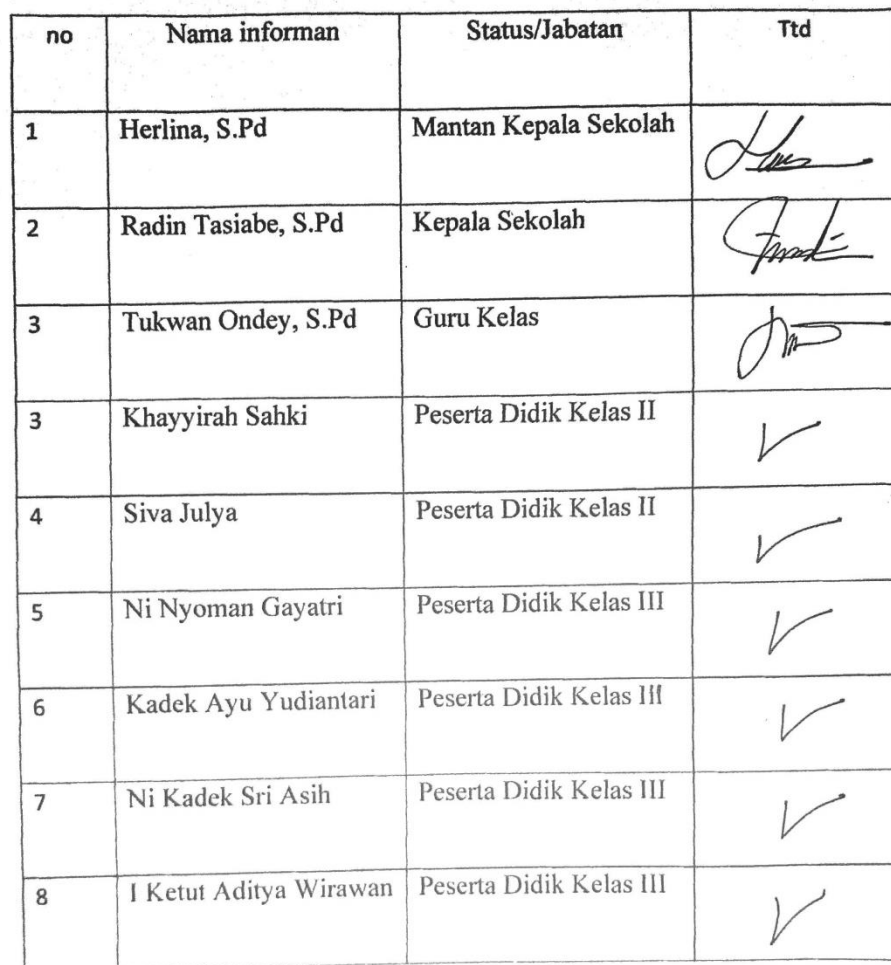 no Nama informan Status/Jabatan Ttd
1 Herlina, S.Pd Mantan Kepala Sekolah
2 Radin Tasiabe, S.Pd Kepala Sekolah
3 Tukwan Ondey, S.Pd Guru Kelas
3 Khayyirah Sahki Peserta Didik Kelas II
4 Siva Julya Peserta Didik Kelas II
5 Ni Nyoman Gayatri Peserta Didik Kelas III
6 Kadek Ayu Yudiantari Peserta Didik Kelas III
7 Ni Kadek Sri Asih Peserta Didik Kelas III
8 I Ketut Aditya Wirawan Peserta Didik Kelas III